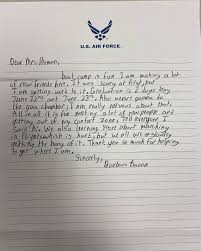 U.S. AIR FORCE
Dear Mrs. Brown,
boot camp is fun I am making a lot
of new friends here. It was scary at first, but
I am getting used to it. Graduation is 2 days long
June 22nd and June 23rd. Also never goin to
the gas chamber, I am really nervous about that.
All in all it is fun meeting a lot of new people and
getting out of my comfort zone. Tell everyone I
Said hi. We also learning about marching
in which is hard, but we all are
getting the hang of it. Thank you so much for helping
to get where I am.
Sincerely,